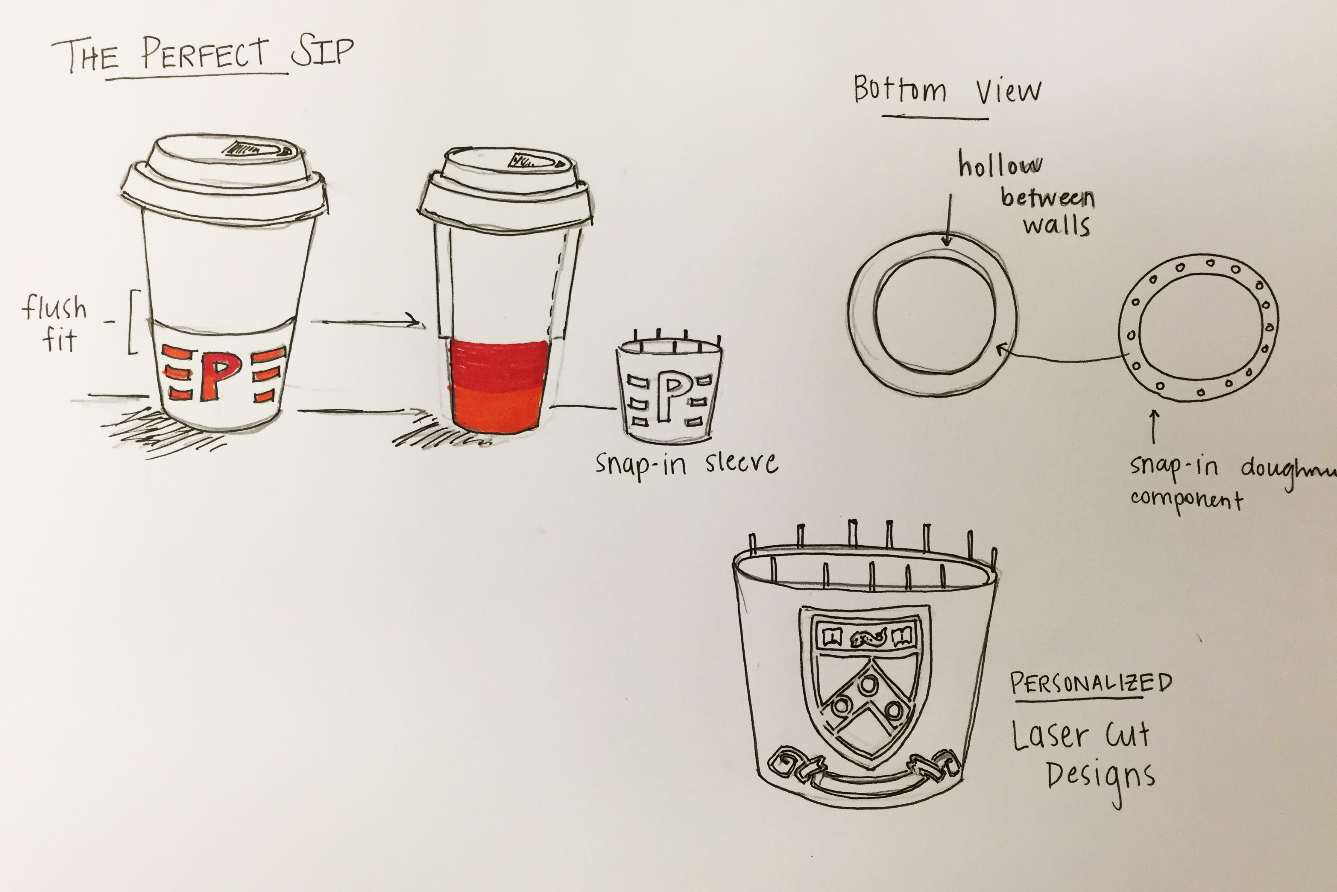 THE PERFECT SIP
flush
fit
P
P
snap-in sleeve
Bottom View
hollow
between
walls
snap-in doughnu
component
PERSONALIZED
Laser Cut
Designs